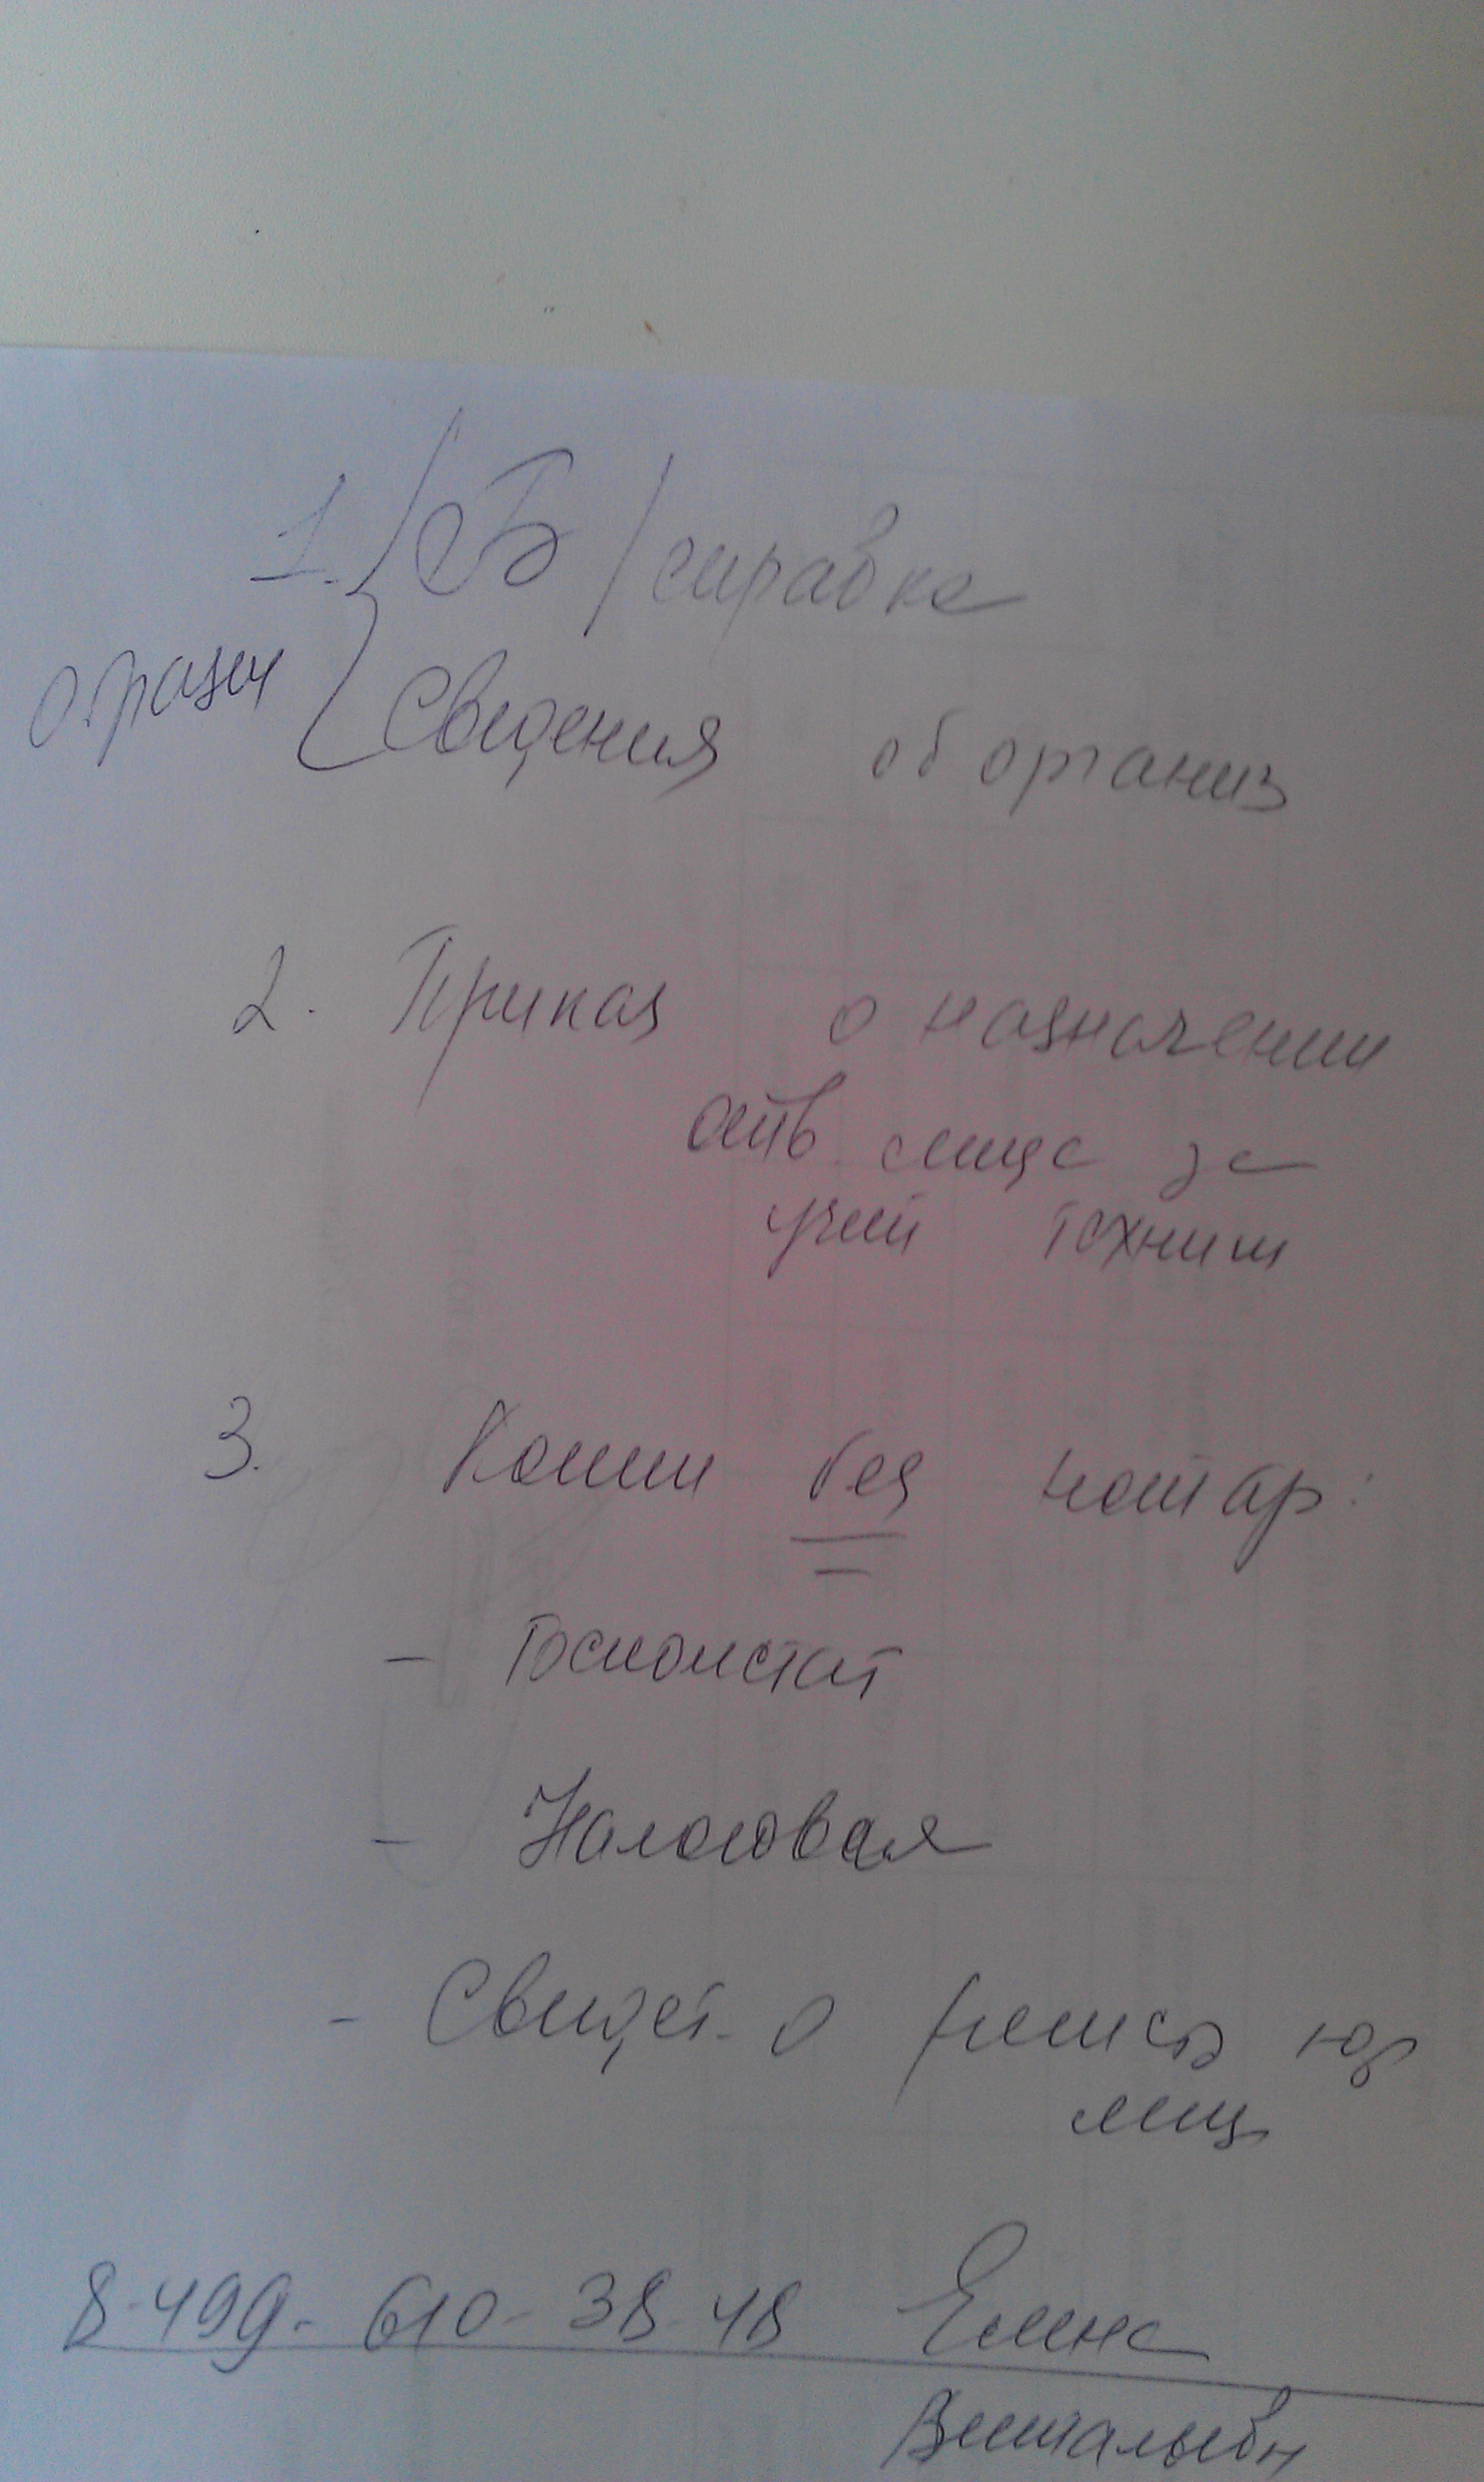 1. / справка
Сведения об организ
2. Приказ о назначении
отв лица за
учет техники
3. Копии без нотар:
- Госкомстат
- Налоговая
- Свидет. о юр
лиц
8-499-610-38-48 Елена
Витальевн